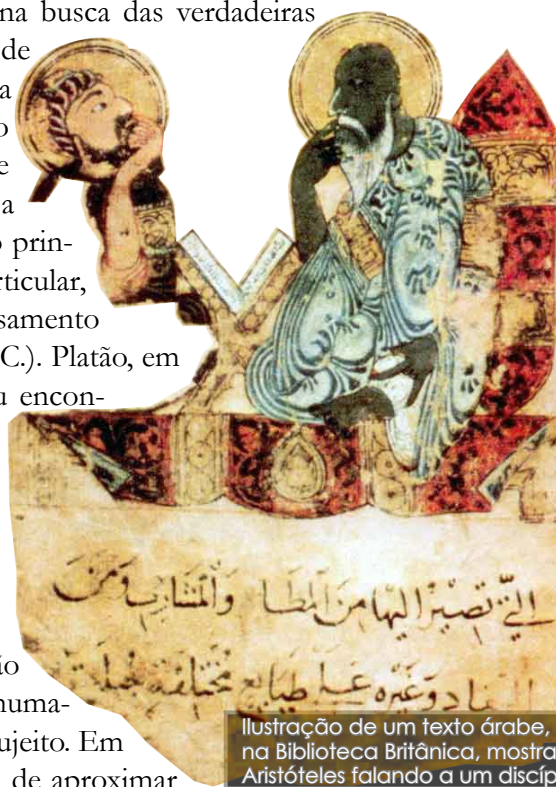 na busca das verdadeiras
de
a
o
e
a
o prin-
rticular,
samento
C.). Platão, em
u encon-
إليها من المطا
وغيره على طبايع مختلفة
ão
numa-
ujeito. Em
de aproximar
Ilustração de um texto árabe,
na Biblioteca Britânica, mostra
Aristóteles falando a um discíp